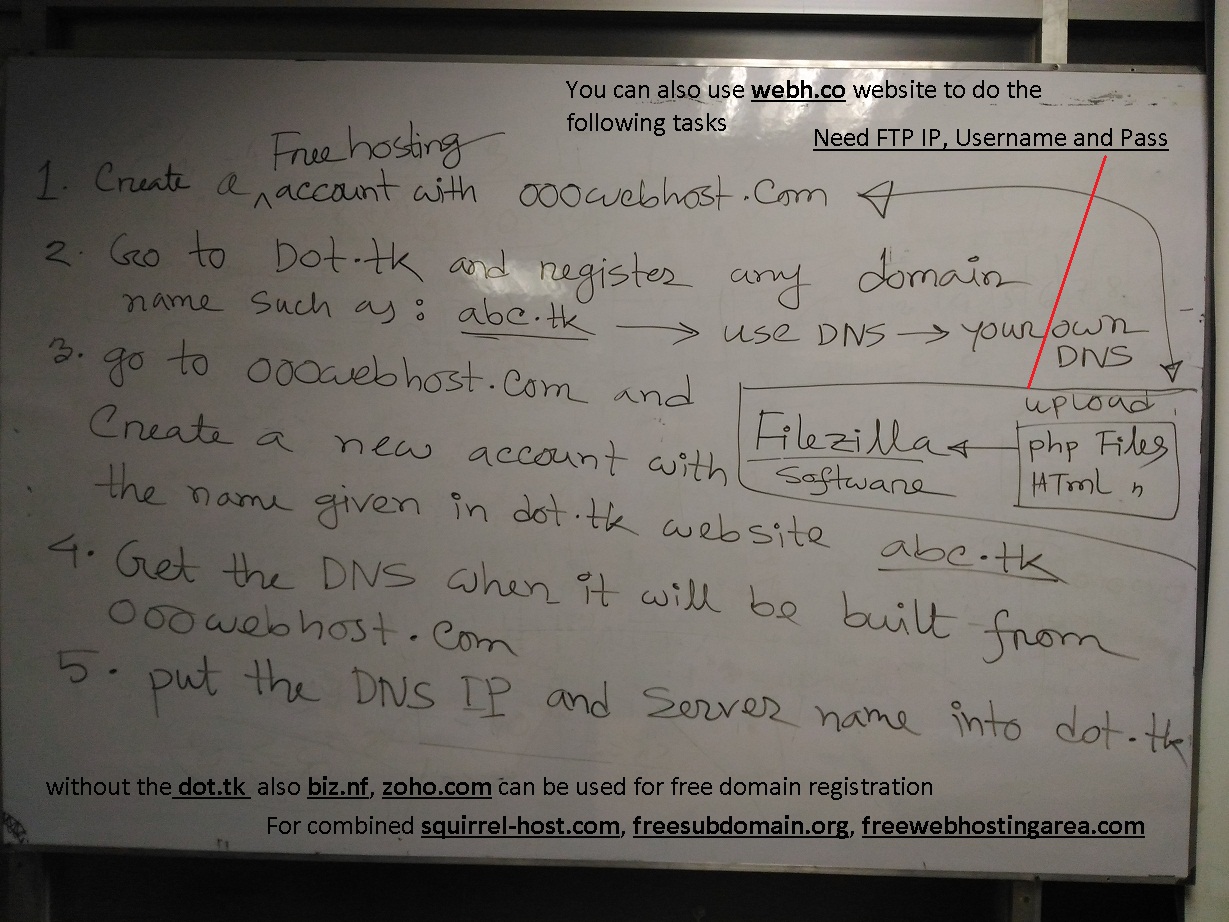 You can also use webh.co website to do the
following tasks
Need FTP IP, Username and Pass
Free hosting
1. Create a ^ account with 000webhost.Com
2. Go to Dot.tk and register any domain
name such as : abc.tk → use DNS → your own
DNS
3. go to 000webhost.com and
Create a new account with
the name given in dot.tk website abc.tk
upload
Filezilla ← php Files
Software HTml
4. Get the DNS when it will be built from
000webhost.com
5. put the DNS IP and Server name into dot.tk
without the dot.tk also biz.nf, zoho.com can be used for free domain registration
For combined squirrel-host.com, freesubdomain.org, freewebhostingarea.com